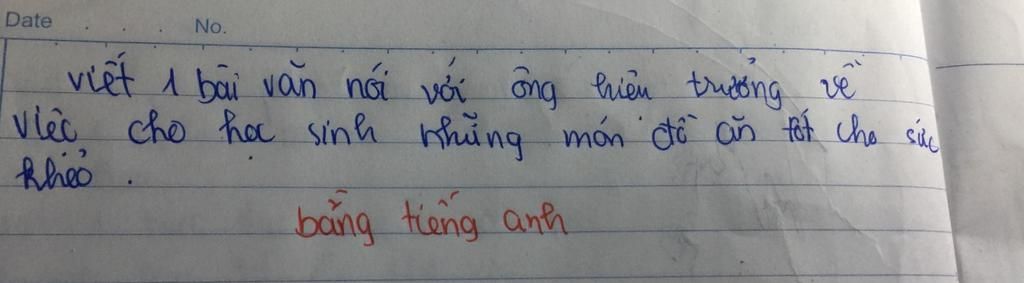 Date . . . . No.
viết 1 bài văn nói với ông hiệu trưởng về
việc cho học sinh những món đồ ăn tốt cho sức
khẻo .
bằng tiếng anh